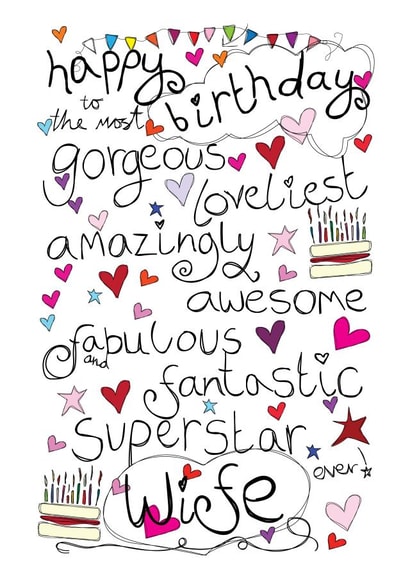 happy birthday
to
the most
gorgeous
loveliest
amazingly
awesome
fabulous
and
fantastic
superstar
ever!
Wife